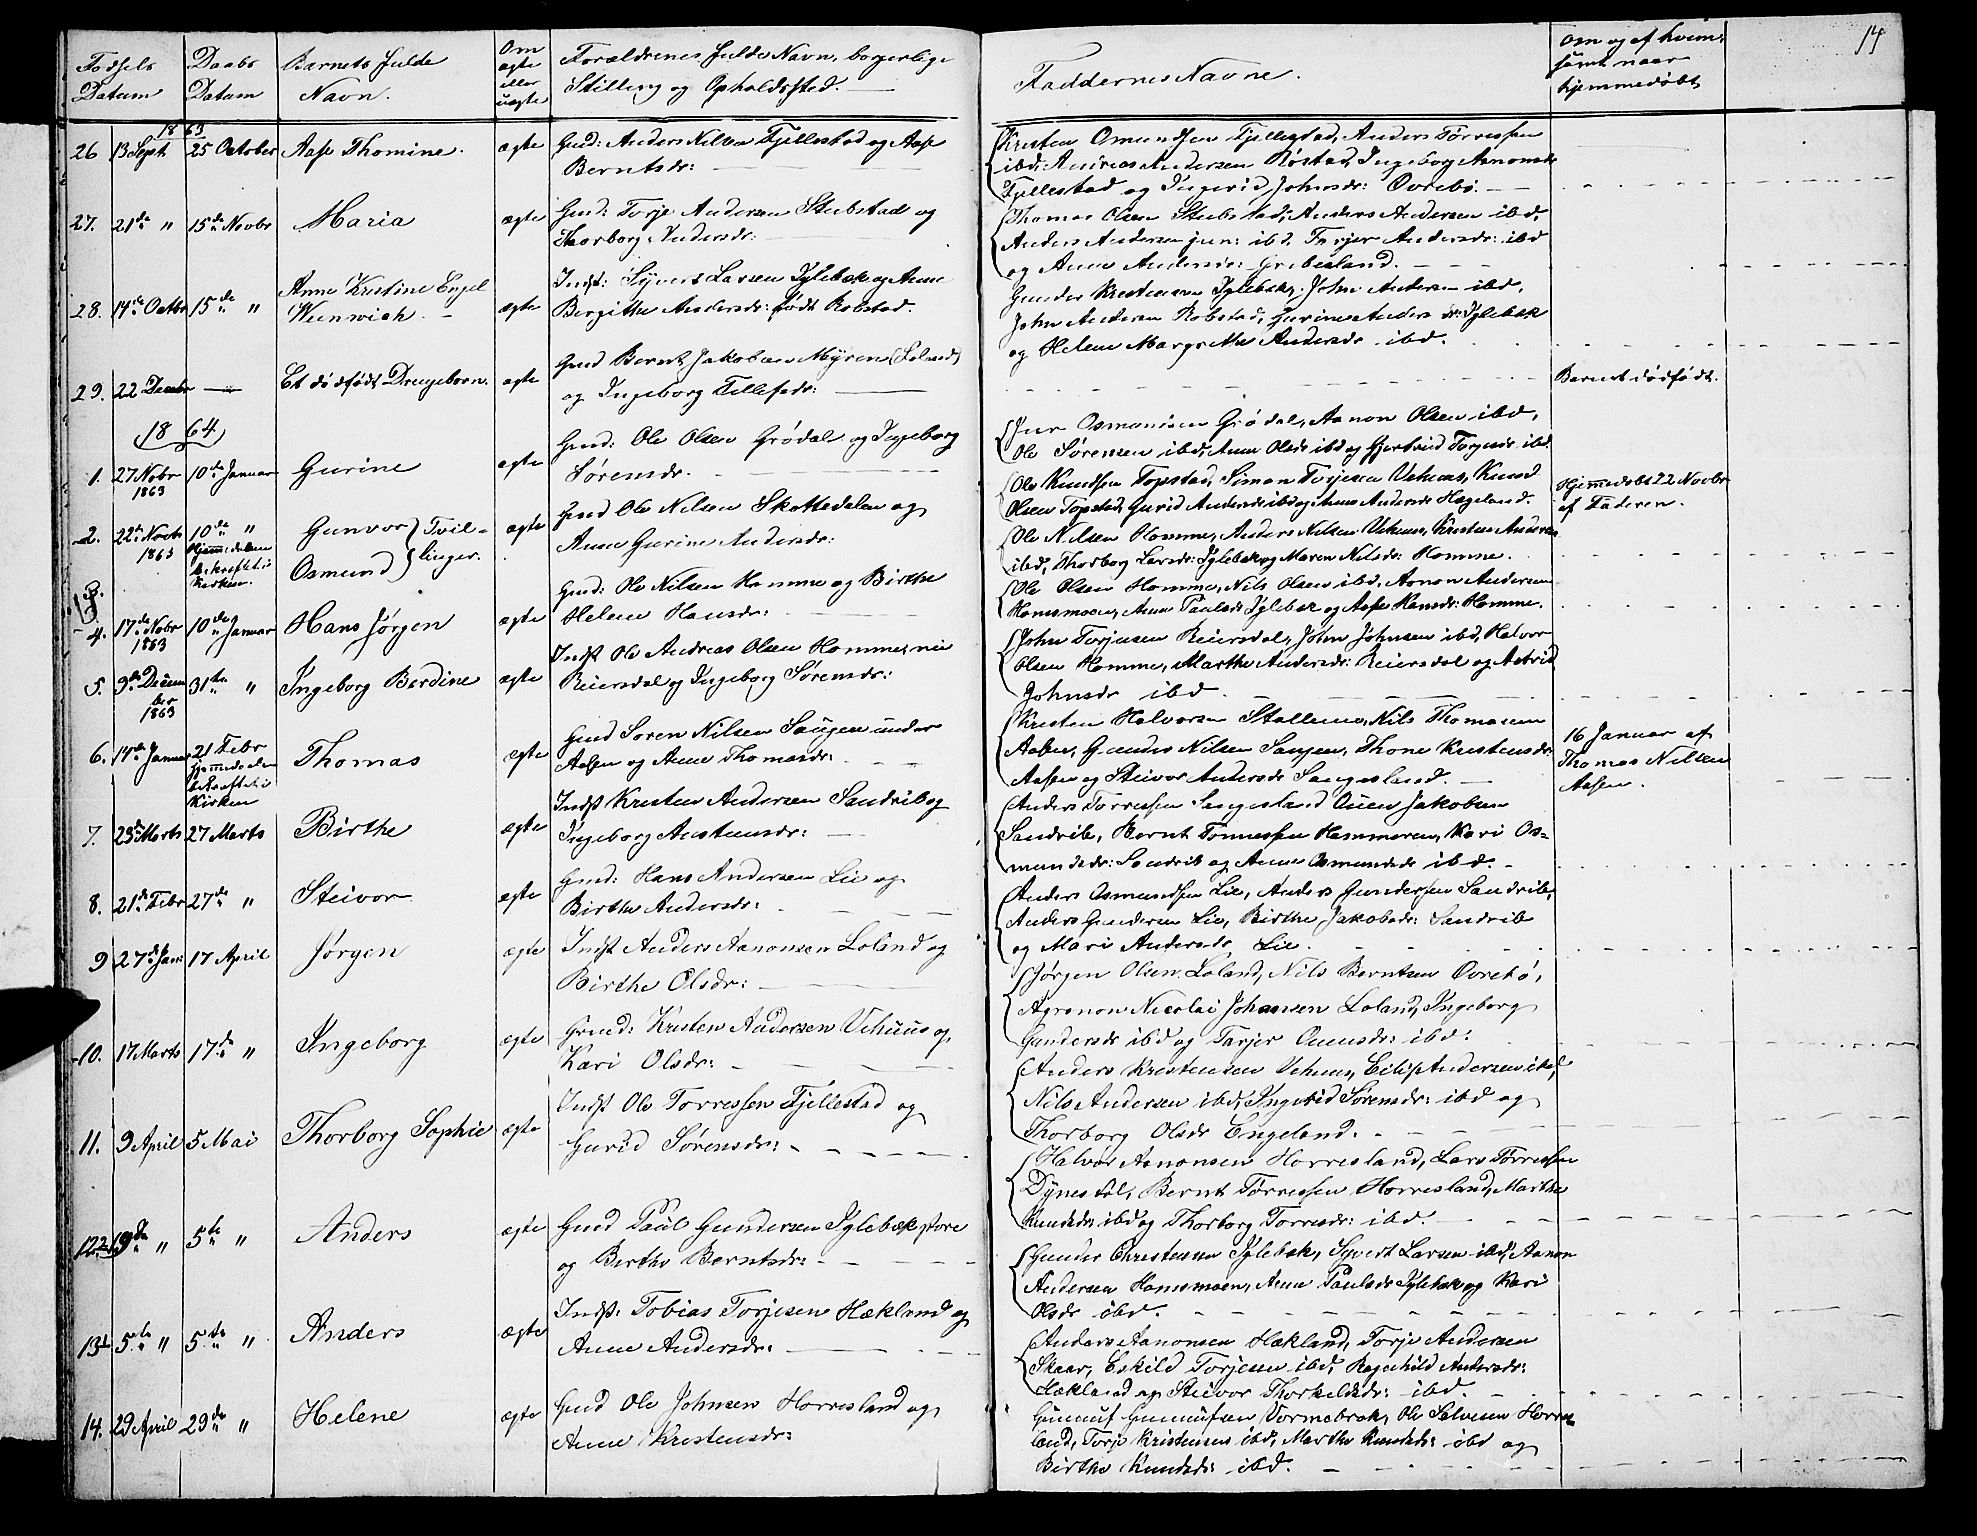 14
Fødsels Datum
Daabs Datum
Barnets fulde Navn.
Om ægte eller uægte
Forældrenes fulde Navn, borgerlige Stilling og Opholdssted.
Faddernes Navne.
Om og af hvem samt naar hjemmedøbt
1863
26 13 Sept 25 October Aase Thomine. ægte
Gmd: Anders Nilsen Fjellestad og Aase
Berntsdr:
Kristen Osmundsen Fjellestad, Anders Tørressen
ibd, Andreas Andersen Røstad, Ingeborg Aanonsdr
Fjellestad og Ingerid Johnsdr: Øvrebø.
27. 21de " 15de Novbr Maria ægte
Gmd: Torje Andersen Stubstad og
Thorborg Andersdr:
Thomas Olsen Stubstad, Anders Andersen ibd,
Anders Andersen jun: ibd, Tarjer Andersdr: ibd
og Anne Andersdr: Greibesland.
28. 14de Octbr 15de " Anne Kristine Engel
Wennwich. ægte
Indst: Syvert Larsen Iglebæk og Anne
Bergithe Andersdr: født Robstad.
Gunder Kristensen Iglebæk, John Andersen ibd,
John Andersen Robstad, Gurine Andersdr: Iglebæk
og Helene Margrethe Andersdr ibd.
29. 22 Decbr Et dødfødt Drengebarn. ægte
Gmd Bernt Jakobsen Myren (Loland)
og Ingeborg Tellefsdr:
Barnet dødfødt.
1864
1. 27 Nobr 1863 10de Januar Gurine ægte
Gmd: Ole Olsen Grødal og Ingeborg
Sørensdr.
Osmundsen Grødal, Aanon Olsen ibd,
Ole Sørensen ibd, Anne Olsdr ibd og Gjertrud Torjusdr ibd.
2. 22de Novbr 1863 10de " Hjemmedaaben bekræftet i Kirken.
3. Gunvor Osmund } Tvillinger. ægte
Gmd Ole Nilsen Skottedalen og
Anne Gurine Andersdr:
Ole Knudsen Topstad, Simon Torjesen Vehuus, Knud
Olsen Topstad, Gurid Andersdr ibd og Anne Andersdr Hægeland.
Ole Nilsen Homme, Anders Nilsen Vehuus, Kristen Andersen
ibd, Thorborg Larsdr: Iglebæk og Maren Nilsdr: Homme.
Hjemmedøbt 22 Novbr
af Faderen.
4. 17de Nobr 1863 10de Januar Hans Jørgen ægte
Gmd: Ole Nilsen Homme og Birthe
Helene Hansdr:
Ole Olsen Homme, Nils Olsen ibd, Aanon Andersen
Homsmoen, Anne Paulsdr Iglebæk og Aase Hansdr: Homme.
5. 9de December 1863 31te " Ingeborg Berdine ægte
Indst Ole Andreas Olsen Homme, nu
Reiersdal og Ingeborg Sørensdr:
John Torjusen Reiersdal, John Johnsen ibd, Halvor
Olsen Homme, Marthe Andersdr: Reiersdal og Astrid
Johnsdr ibd.
6. 14de Januar 21 Febr Hjemmedaaben bekræftet i Kirken Thomas ægte
Gmd Søren Nilsen Saugen under
Aasen og Anne Thomasdr:
Kristen Halvorsen Stallemo, Nils Thomasen
Aasen, Gunder Nilsen Saugen, Thone Kristensdr
Aasen og Steivor Andersdr Sangesland.
16 Januar af
Thomas Nilsen
Aasen.
7. 28de Marts 27 Marts Birthe ægte
Indst Kristen Andersen Sandrib og
Ingeborg Austensdr:
Anders Tørressen Sangesland, Ouen Jakobsen
Sandrib, Bernt Tønnessen Hammeren, Kari Os-
mundsdr: Sandrib og Anne Osmundsdr ibd.
8. 21de Febr 27de " Steivor ægte
Gmd: Hans Andersen Lie og
Birthe Andersdr:
Anders Osmundsen Lie, Anders Gundersen Sandrib,
Anders Gundersen Lie, Birthe Jakobsdr: Sandrib
og Mari Andersdr Lie.
9 27de Jan: 17 April Jørgen ægte
Indst Anders Aanonsen Loland og
Birthe Olsdr:
Jørgen Olsen Loland, Nils Berntsen Øvrebø,
Agronom Nicolai Johansen Loland, Ingeborg
Gundersdr ibd og Tarjer Ouensdr: ibd.
10. 17 Marts 17de " Ingeborg ægte
Gmd: Kristen Andersen Vehuus og
Kari Olsdr:
Anders Kristensen Vehuus, Eilif Andersen ibd,
Nils Andersen ibd, Ingerid Sørensdr: ibd og
Thorborg Olsdr Engeland.
11. 9 April 5 Mai Thorborg Sophie ægte
Indst Ole Tørressen Fjellestad og
Gurid Sørensdr:
Halvor Aanonsen Horrisland, Lars Tørressen
Dynestøl, Bernt Tørressen Horrisland, Marthe
Knudsdr: ibd og Thorborg Torresdr: ibd.
12. 19de " 5te " Anders ægte
Gmd Paul Gundersen Iglebæk store
og Berthe Berntsdr:
Gunder Christensen Iglebæk, Syvert Larsen ibd, Aanon
Andersen Homsmoen, Anne Paulsdr Iglebæk og Kari
Olsdr ibd.
13 5te " 5te " Anders ægte
Indst: Tobias Torjesen Hækland og
Anne Andersdr:
Anders Aanonsen Hækland, Torje Andersen
Skaar, Eskild Torjesen ibd, Ragnhild Andersdr:
Hækland og Steivor Thorkeldsdr: ibd.
14. 29 April 29de " Helene ægte
Gmd Ole Johnsen Horrisland og
Anne Kristensdr:
Gunnuf Gunnufsen Vormebrok, Ole Salvesen Horris-
land, Torje Kristensen ibd, Marthe Knudsdr: ibd og
Birthe Knudsdr: ibd.